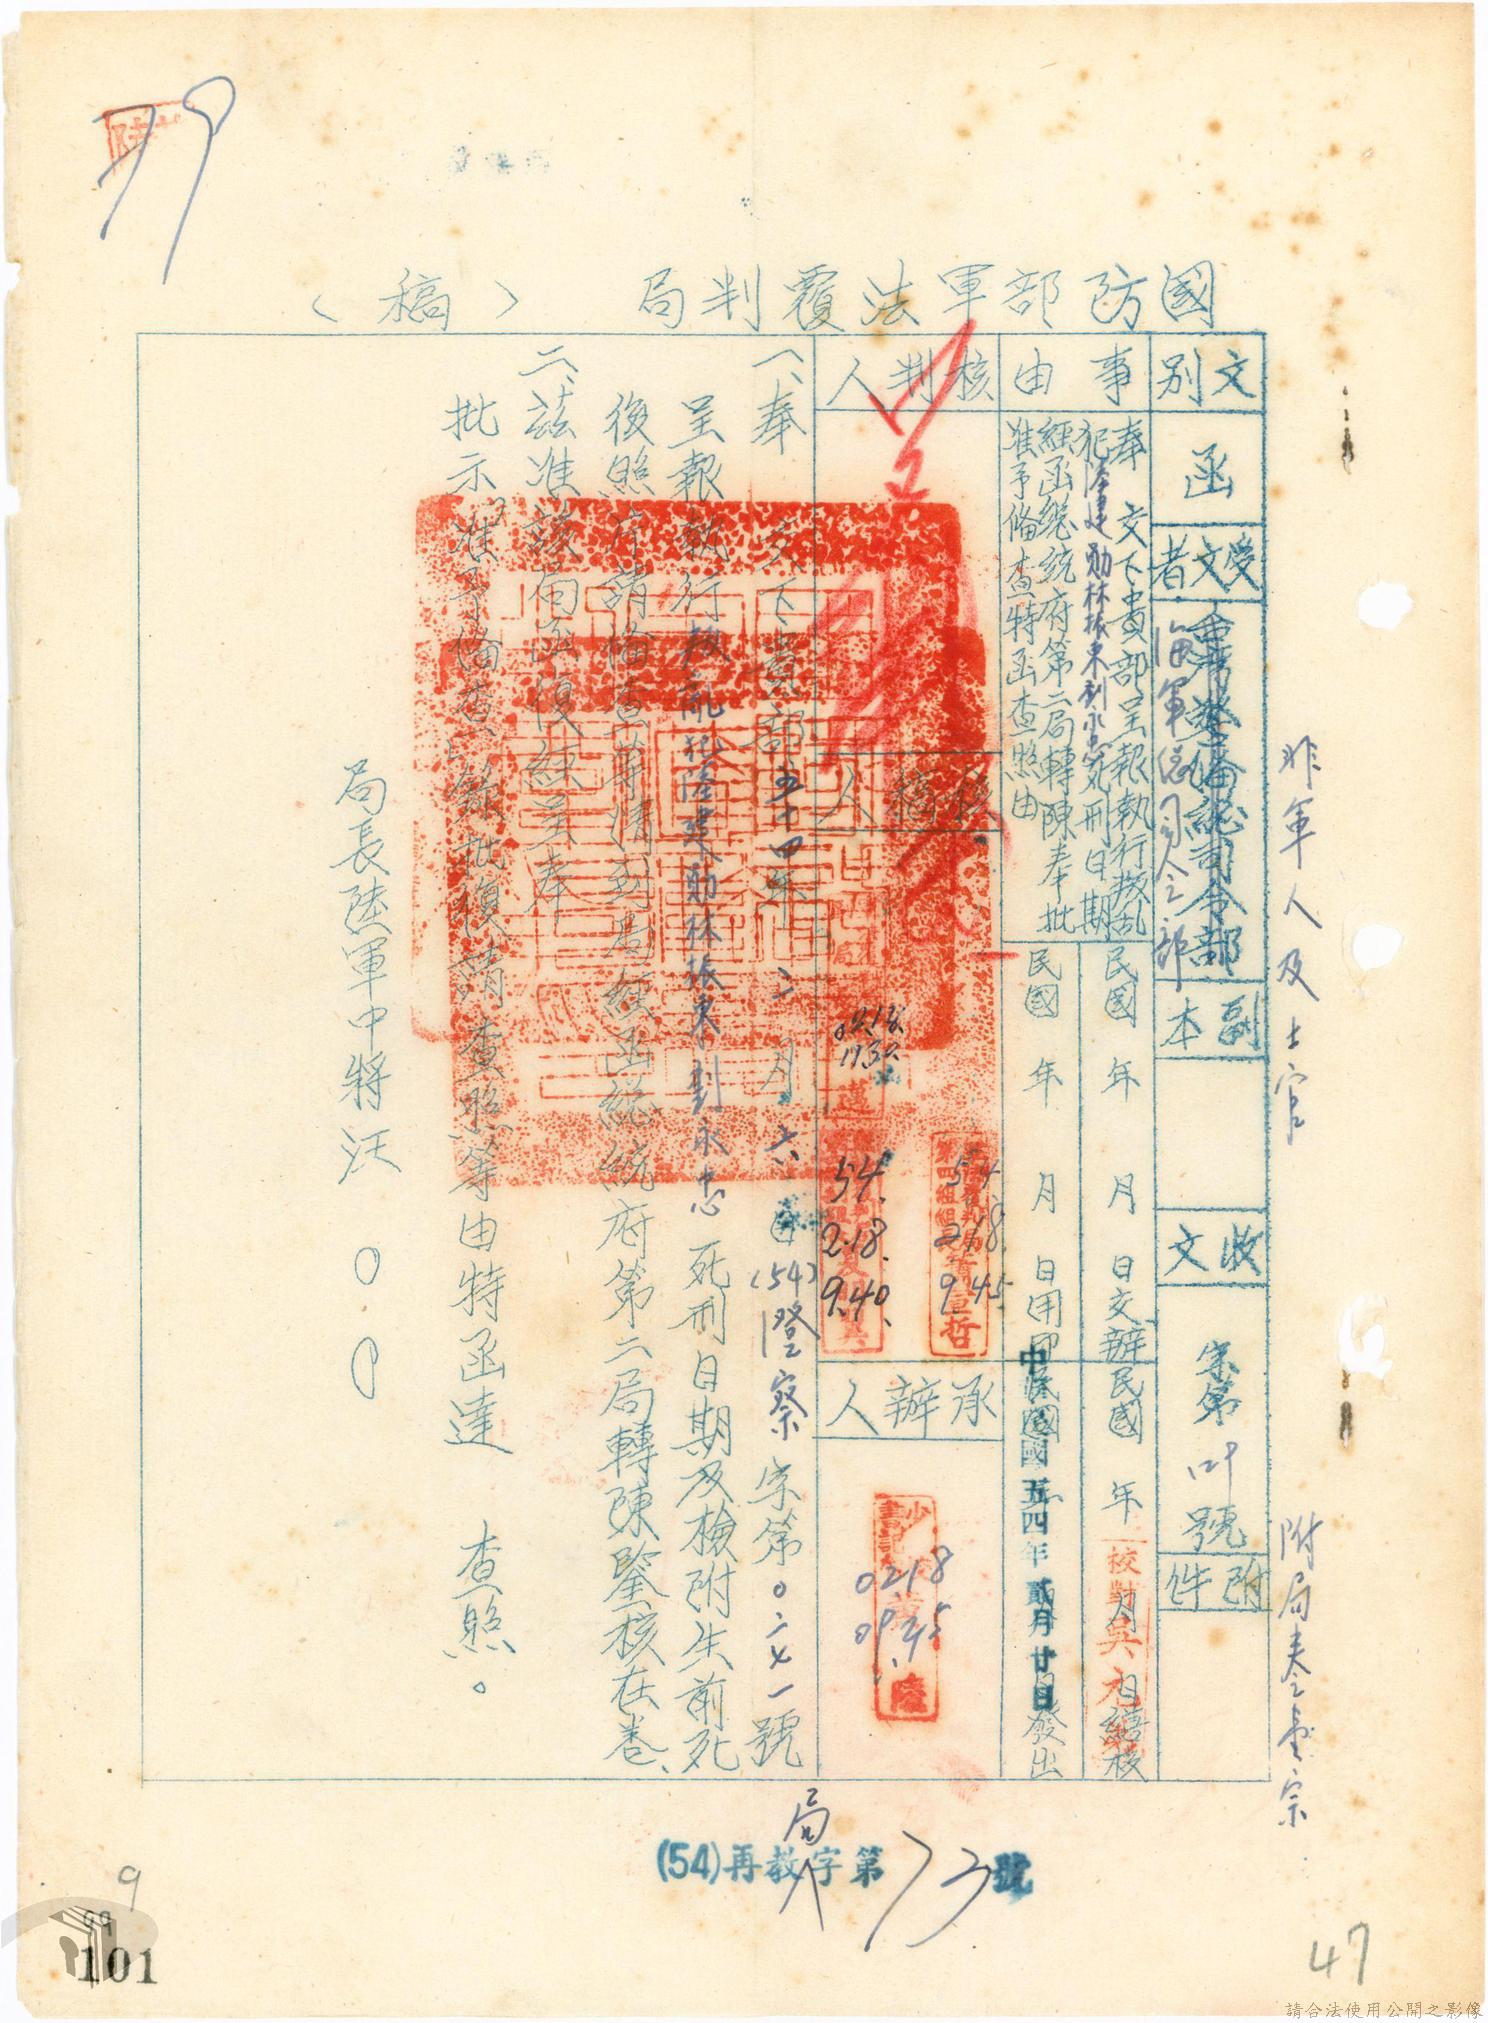 國防部軍法覆判局（稿）
文別
函
受文者
臺灣警備總司令部
海軍總司令部
副本
收文
字第 號
附件
非軍人及士官
附局卷壹宗
事由
奉 交下貴部呈報執行叛乱
犯陸建勛林振東劉永忠死刑日期
經函總統府第二局轉陳奉批
准予備查特函查照由
民國 年 月 日交辦
民國 年 月 日繕校
民國 年 月 日用印
民國 年 月 日發出
中華民國五四年貳月廿日
核判人
核稿人
承辦人
54. 2.18. 9.45
54. 2.18. 9.40.
0218 0945
02.18. 1130.
一、奉 交下貴部五十四年二月六日(54)澄察字第〇二七一號
呈報執行叛亂犯陸建勛林振東劉永忠死刑日期及檢附生前死
後照片請備查等情到局經函總統府第二局轉陳鑒核在卷、
二、茲准該局函復經呈奉
批示「准予備查」錄批復請查照等由特函達 查照。
局長陸軍中將汪〇〇
(54)再教字第73號
局
79
9
99
101
47
請合法使用公開之影像